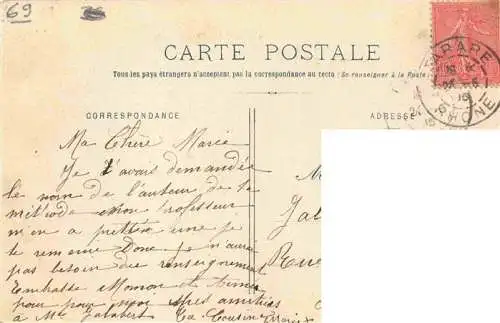 69
CARTE POSTALE
Tous les pays étrangers n'acceptent pas la correspondance au recto (Se renseigner à la Poste
CORRESPONDANCE
ADRESSE
TARARE
RHONE
Ma Chère Marie
Je t'avais demandée
le nom de l'auteur de ta
méthode mon professeur
m'en a prêttée une je
te remercie Donc je n'aurai
pas besoin du renseignement
Embrasse Momon et Aimé
pour pour amitiés
à Mme Jalabert Ta Cousine
M
Jala
Rue